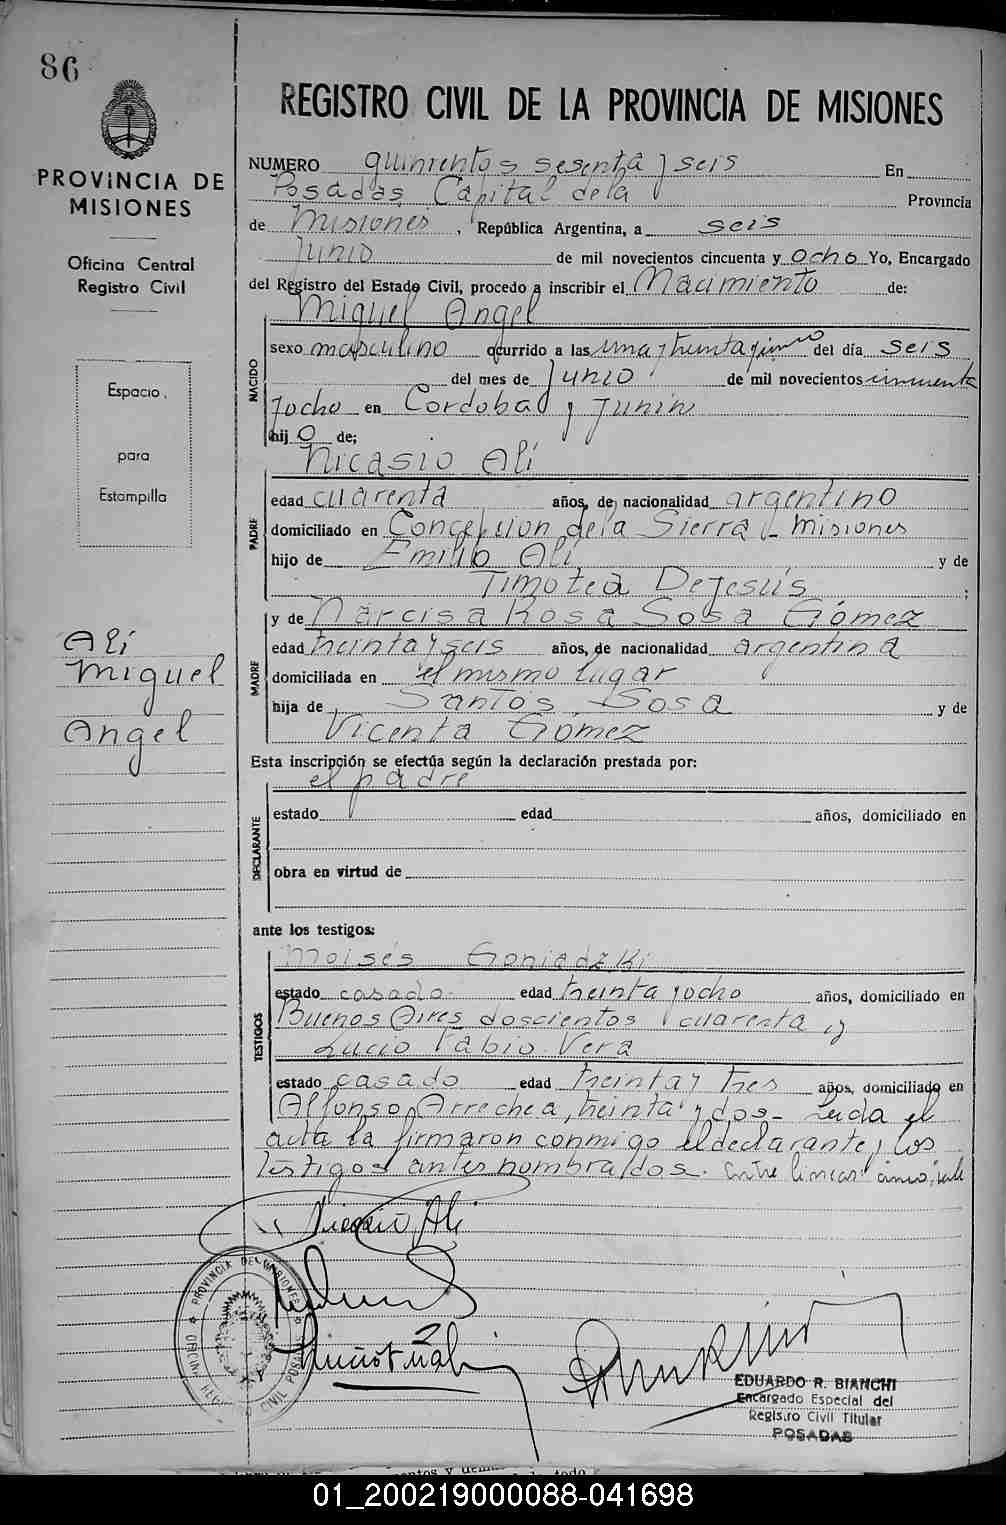 86
PROVINCIA DE
MISIONES
Oficina Central
Registro Civil
Espacio
para
Estampilla
Alí
Miguel
Angel
REGISTRO CIVIL DE LA PROVINCIA DE MISIONES
NUMERO quinientos sesenta y seis En
Posadas Capital de la Provincia
de Misiones, República Argentina, a seis
Junio de mil novecientos cincuenta y ocho Yo, Encargado
del Registro del Estado Civil, procedo a inscribir el Nacimiento de:
Miguel Angel
NACIDO
sexo masculino ocurrido a las una y treinta y cinco del día seis
del mes de Junio de mil novecientos cincuenta
y ocho en Cordoba y Junin
hijo de;
Nicasio Alí
PADRE
edad cuarenta años, de nacionalidad argentino
domiciliado en Concepcion de la Sierra - Misiones
hijo de Emilio Alí y de
Timotea Dejesús ;
y de Narcisa Rosa Sosa Gómez
MADRE
edad treinta y seis años, de nacionalidad argentina
domiciliada en el mismo lugar
hija de Santos Sosa y de
Vicenta Gomez
Esta inscripción se efectúa según la declaración prestada por:
el padre
DECLARANTE
estado edad años, domiciliado en
obra en virtud de
ante los testigos:
Moisés Goniadzki
TESTIGOS
estado casado edad treinta y ocho años, domiciliado en
Buenos Aires doscientos cuarenta y
Lucio Fabio Vera
estado casado edad treinta y tres años, domiciliado en
Alfonso Arrechea, treinta y dos - Leida el
acta la firmaron conmigo el declarante y los
testigos antes nombrados. Entre lineas: cinco: vale
Nicasio Alí
PROVINCIA DE MISIONES
OFICINA REGISTRO CIVIL POSADAS
EDUARDO R. BIANCHI
Encargado Especial del
Registro Civil Titular
POSADAS
01_200219000088-041698